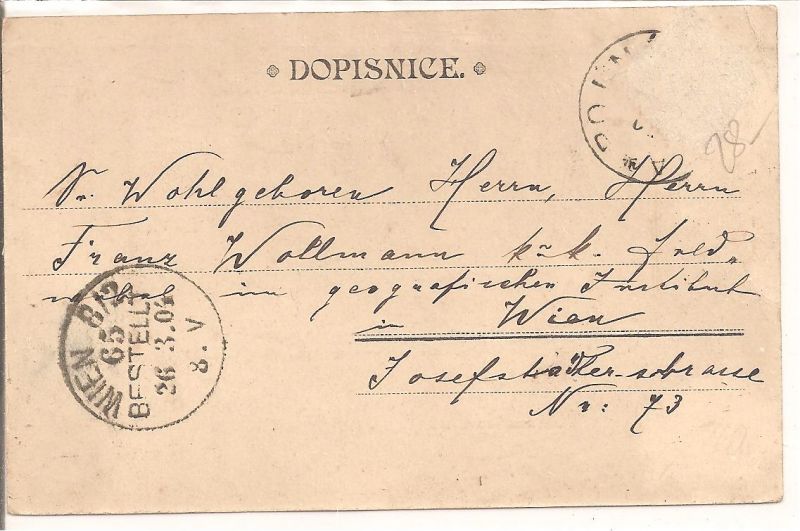 DOPISNICE.
Sr. Wohlgeboren Herrn, Herrn
Franz Wollmann k.u.k. Feld-
webel im geografischen Institut
in Wien
Josefstädter-strasse
Nr: 73
WIEN 8/2
65
BESTELLT
26 3.02
8. V
28